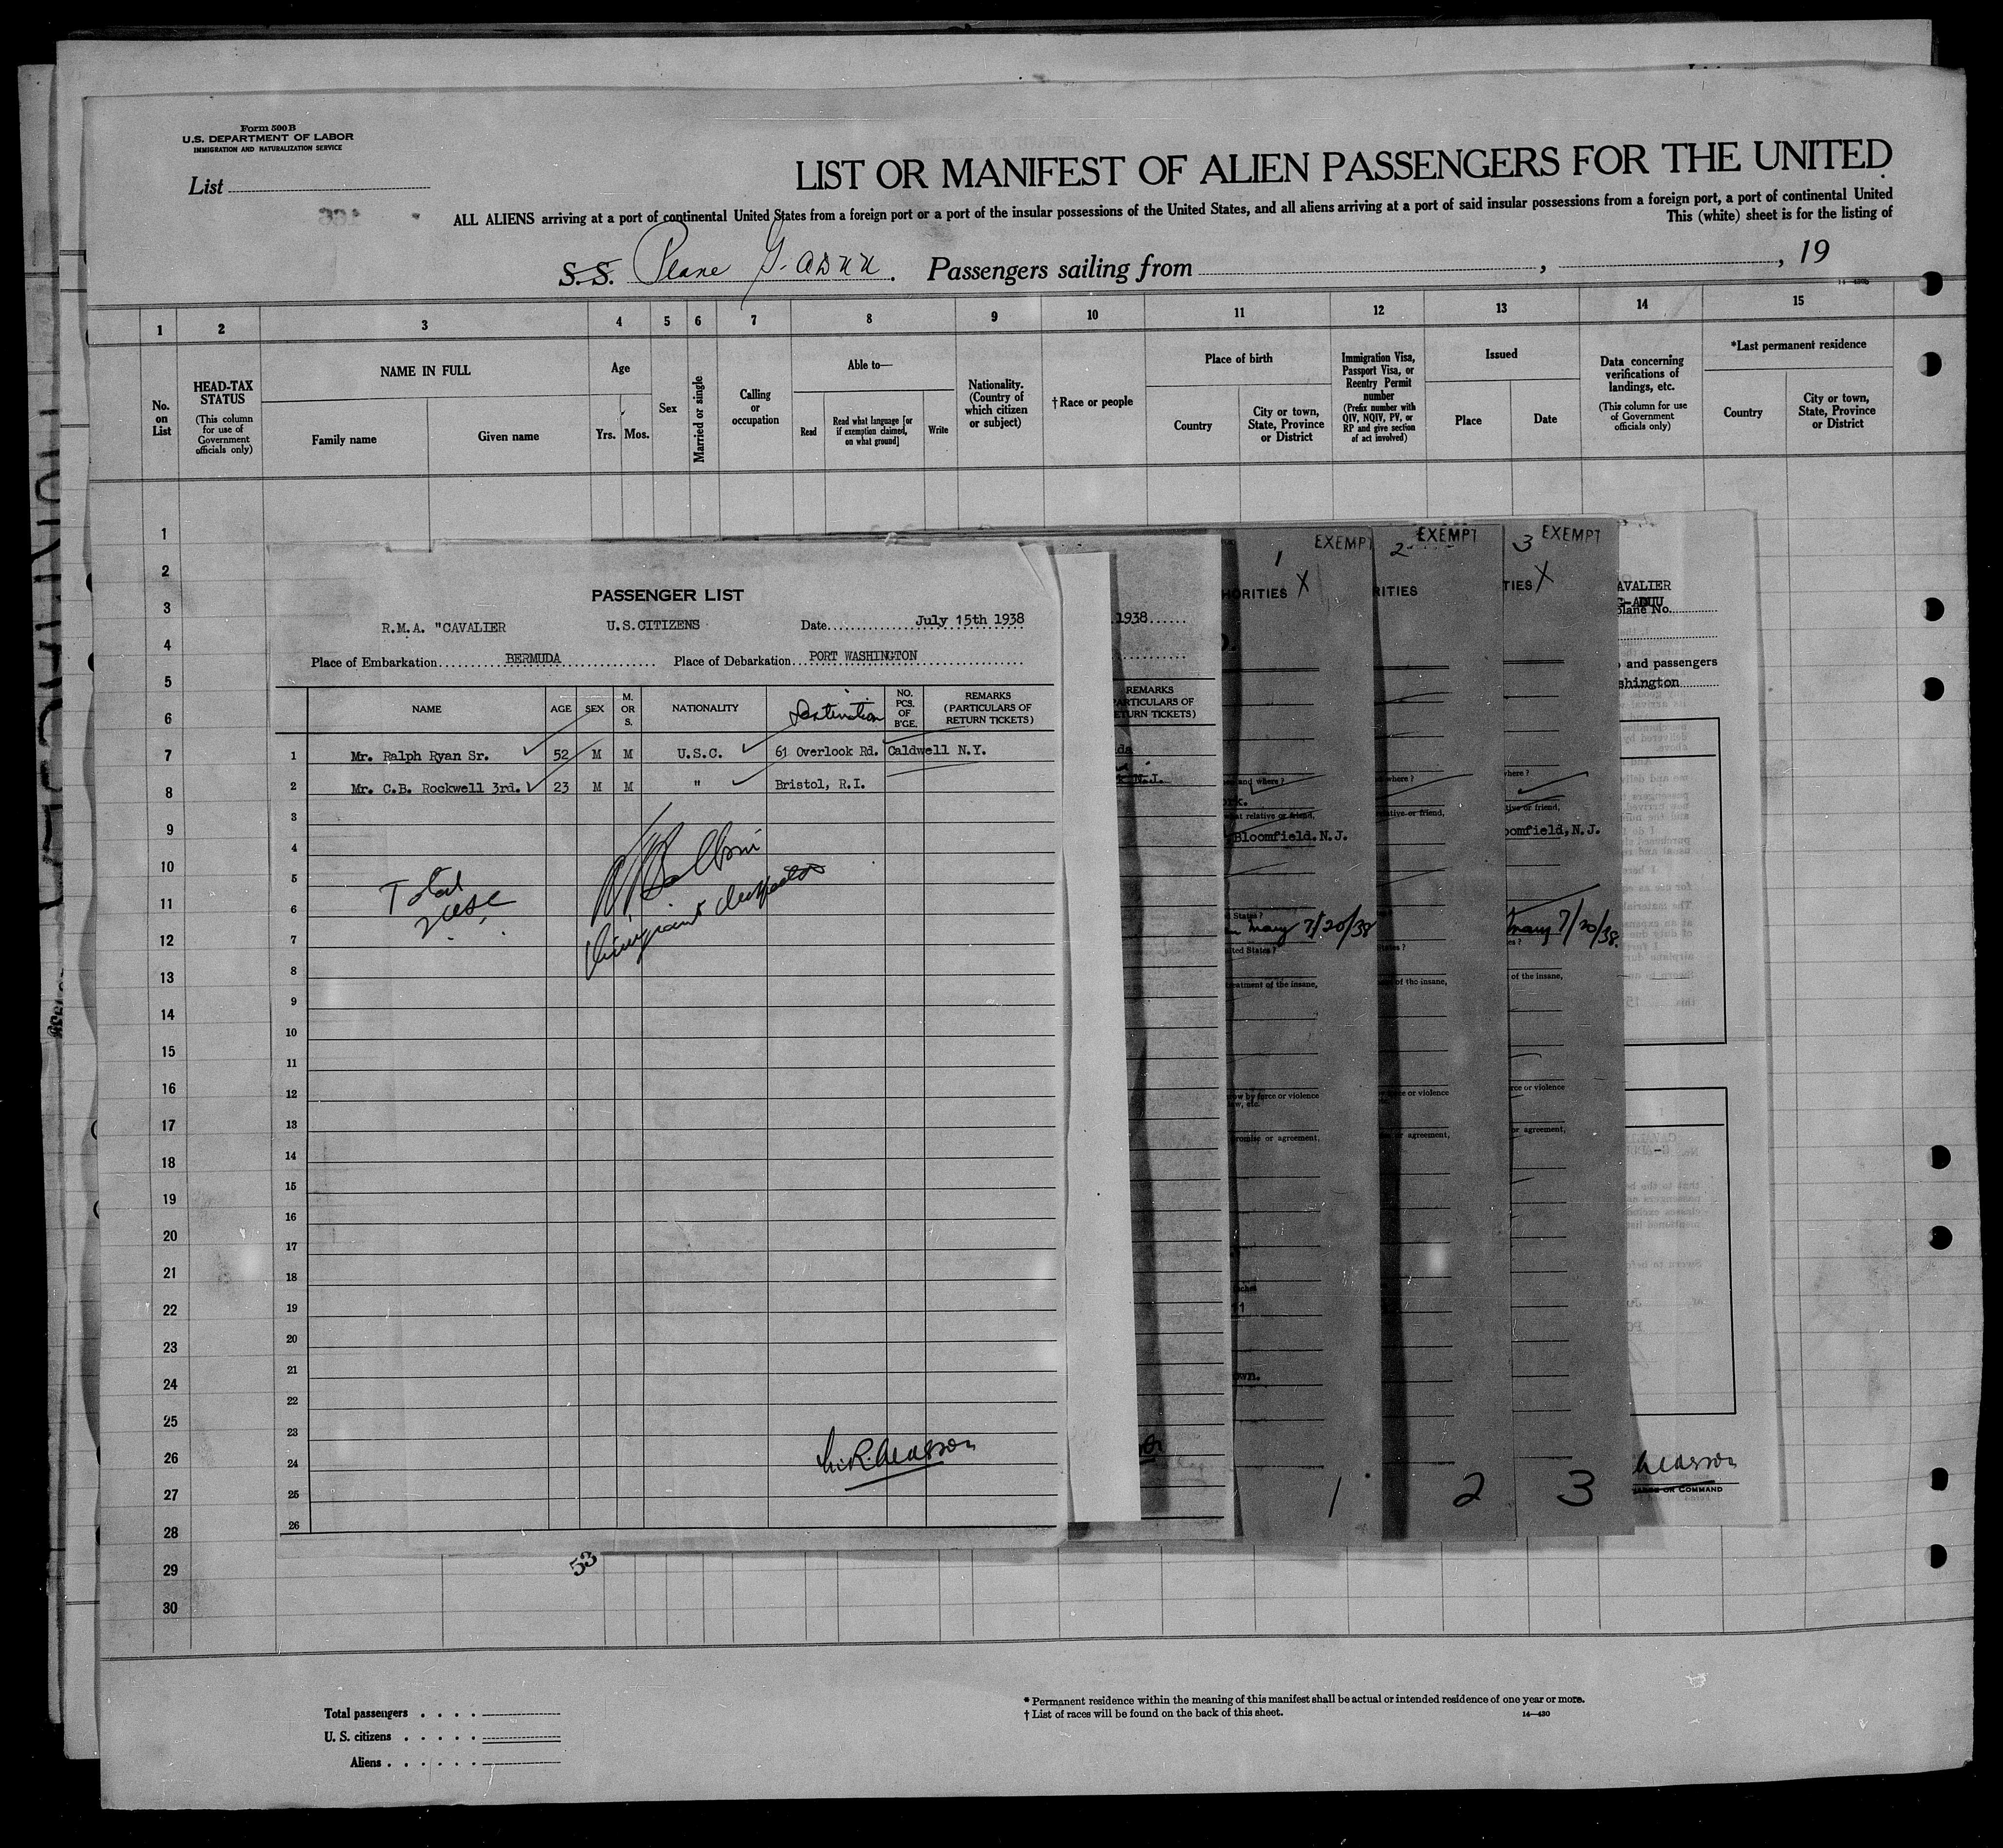 Form 500B
U.S. DEPARTMENT OF LABOR
IMMIGRATION AND NATURALIZATION SERVICE
List
LIST OR MANIFEST OF ALIEN PASSENGERS FOR THE UNITED
ALL ALIENS arriving at a port of continental United States from a foreign port or a port of the insular possessions of the United States, and all aliens arriving at a port of said insular possessions from a foreign port, a port of continental United
This (white) sheet is for the listing of
S.S. Plane G-ADUU. Passengers sailing from , , 19
1 2 3 4 5 6 7 8 9 10 11 12 13 14 15
No. on List
HEAD-TAX STATUS
(This column for use of Government officials only)
NAME IN FULL
Family name
Given name
Age
Yrs. Mos.
Sex
Married or single
Calling or occupation
Able to—
Read
Read what language [or if exemption claimed, on what ground]
Write
Nationality. (Country of which citizen or subject)
†Race or people
Place of birth
Country
City or town, State, Province or District
Immigration Visa, Passport Visa, or Reentry Permit number
(Prefix number with QIV, NQIV, PV, or RP and give section of act involved)
Issued
Place
Date
Data concerning verifications of landings, etc.
(This column for use of Government officials only)
*Last permanent residence
Country
City or town, State, Province or District
1
2
3
4
5
6
7
8
9
10
11
12
13
14
15
16
17
18
19
20
21
22
23
24
25
26
27
28
29
30
PASSENGER LIST
R.M.A. "CAVALIER U.S.CITIZENS Date July 15th 1938
Place of Embarkation BERMUDA Place of Debarkation PORT WASHINGTON
NAME AGE SEX M. OR S. NATIONALITY Destination NO. PCS. OF B'GE. REMARKS (PARTICULARS OF RETURN TICKETS)
1 Mr. Ralph Ryan Sr. 52 M M U.S.C. 61 Overlook Rd. Caldwell N.Y.
2 Mr. C.B. Rockwell 3rd. 23 M M " Bristol, R.I.
3
4
5
6
7
8
9
10
11
12
13
14
15
16
17
18
19
20
21
22
23
24
25
26
Total
2 USC
Immigrant Inspector
53
1938
REMARKS
PARTICULARS OF
RETURN TICKETS)
N.J.
1 EXEMPT
ORITIES X
and where?
at relative or friend,
Bloomfield.N.J.
States?
Mary 7/20/38
ted States?
eatment of the insane,
ow by force or violence
aw, etc.
romise or agreement,
own.
1
2 EXEMPT
RITIES
where?
elative or friend,
of the insane,
ce or violence
or agreement,
2
3 EXEMPT
TIES X
here?
tive or friend,
oomfield,N.J.
Mary 7/20/38.
of the insane,
rce or violence
or agreement,
3
AVALIER
G-ADUU
plane No.
and passengers
shington
OR COMMAND
Total passengers
U. S. citizens
Aliens
* Permanent residence within the meaning of this manifest shall be actual or intended residence of one year or more.
† List of races will be found on the back of this sheet.
14—430